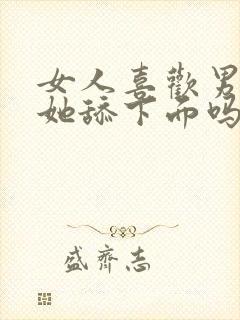 女人喜歡男
她舔下面吗
盛齊志